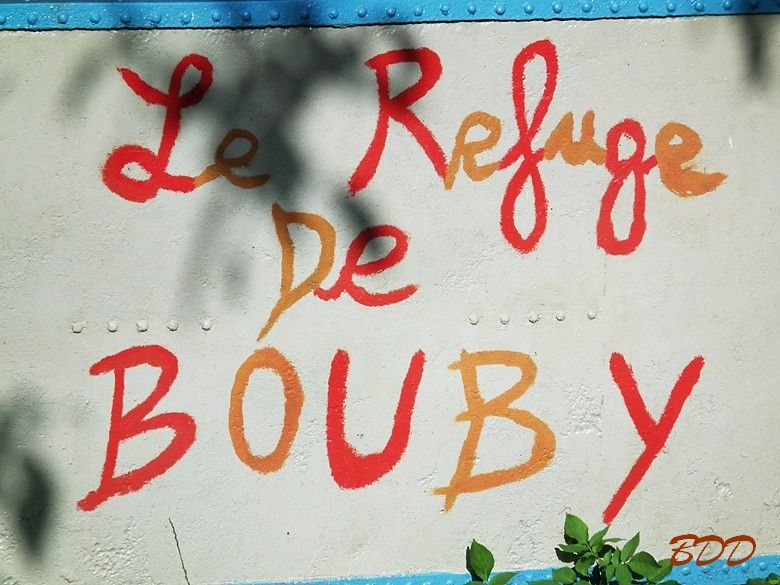 Le Refuge
De
BOUBY
BDD